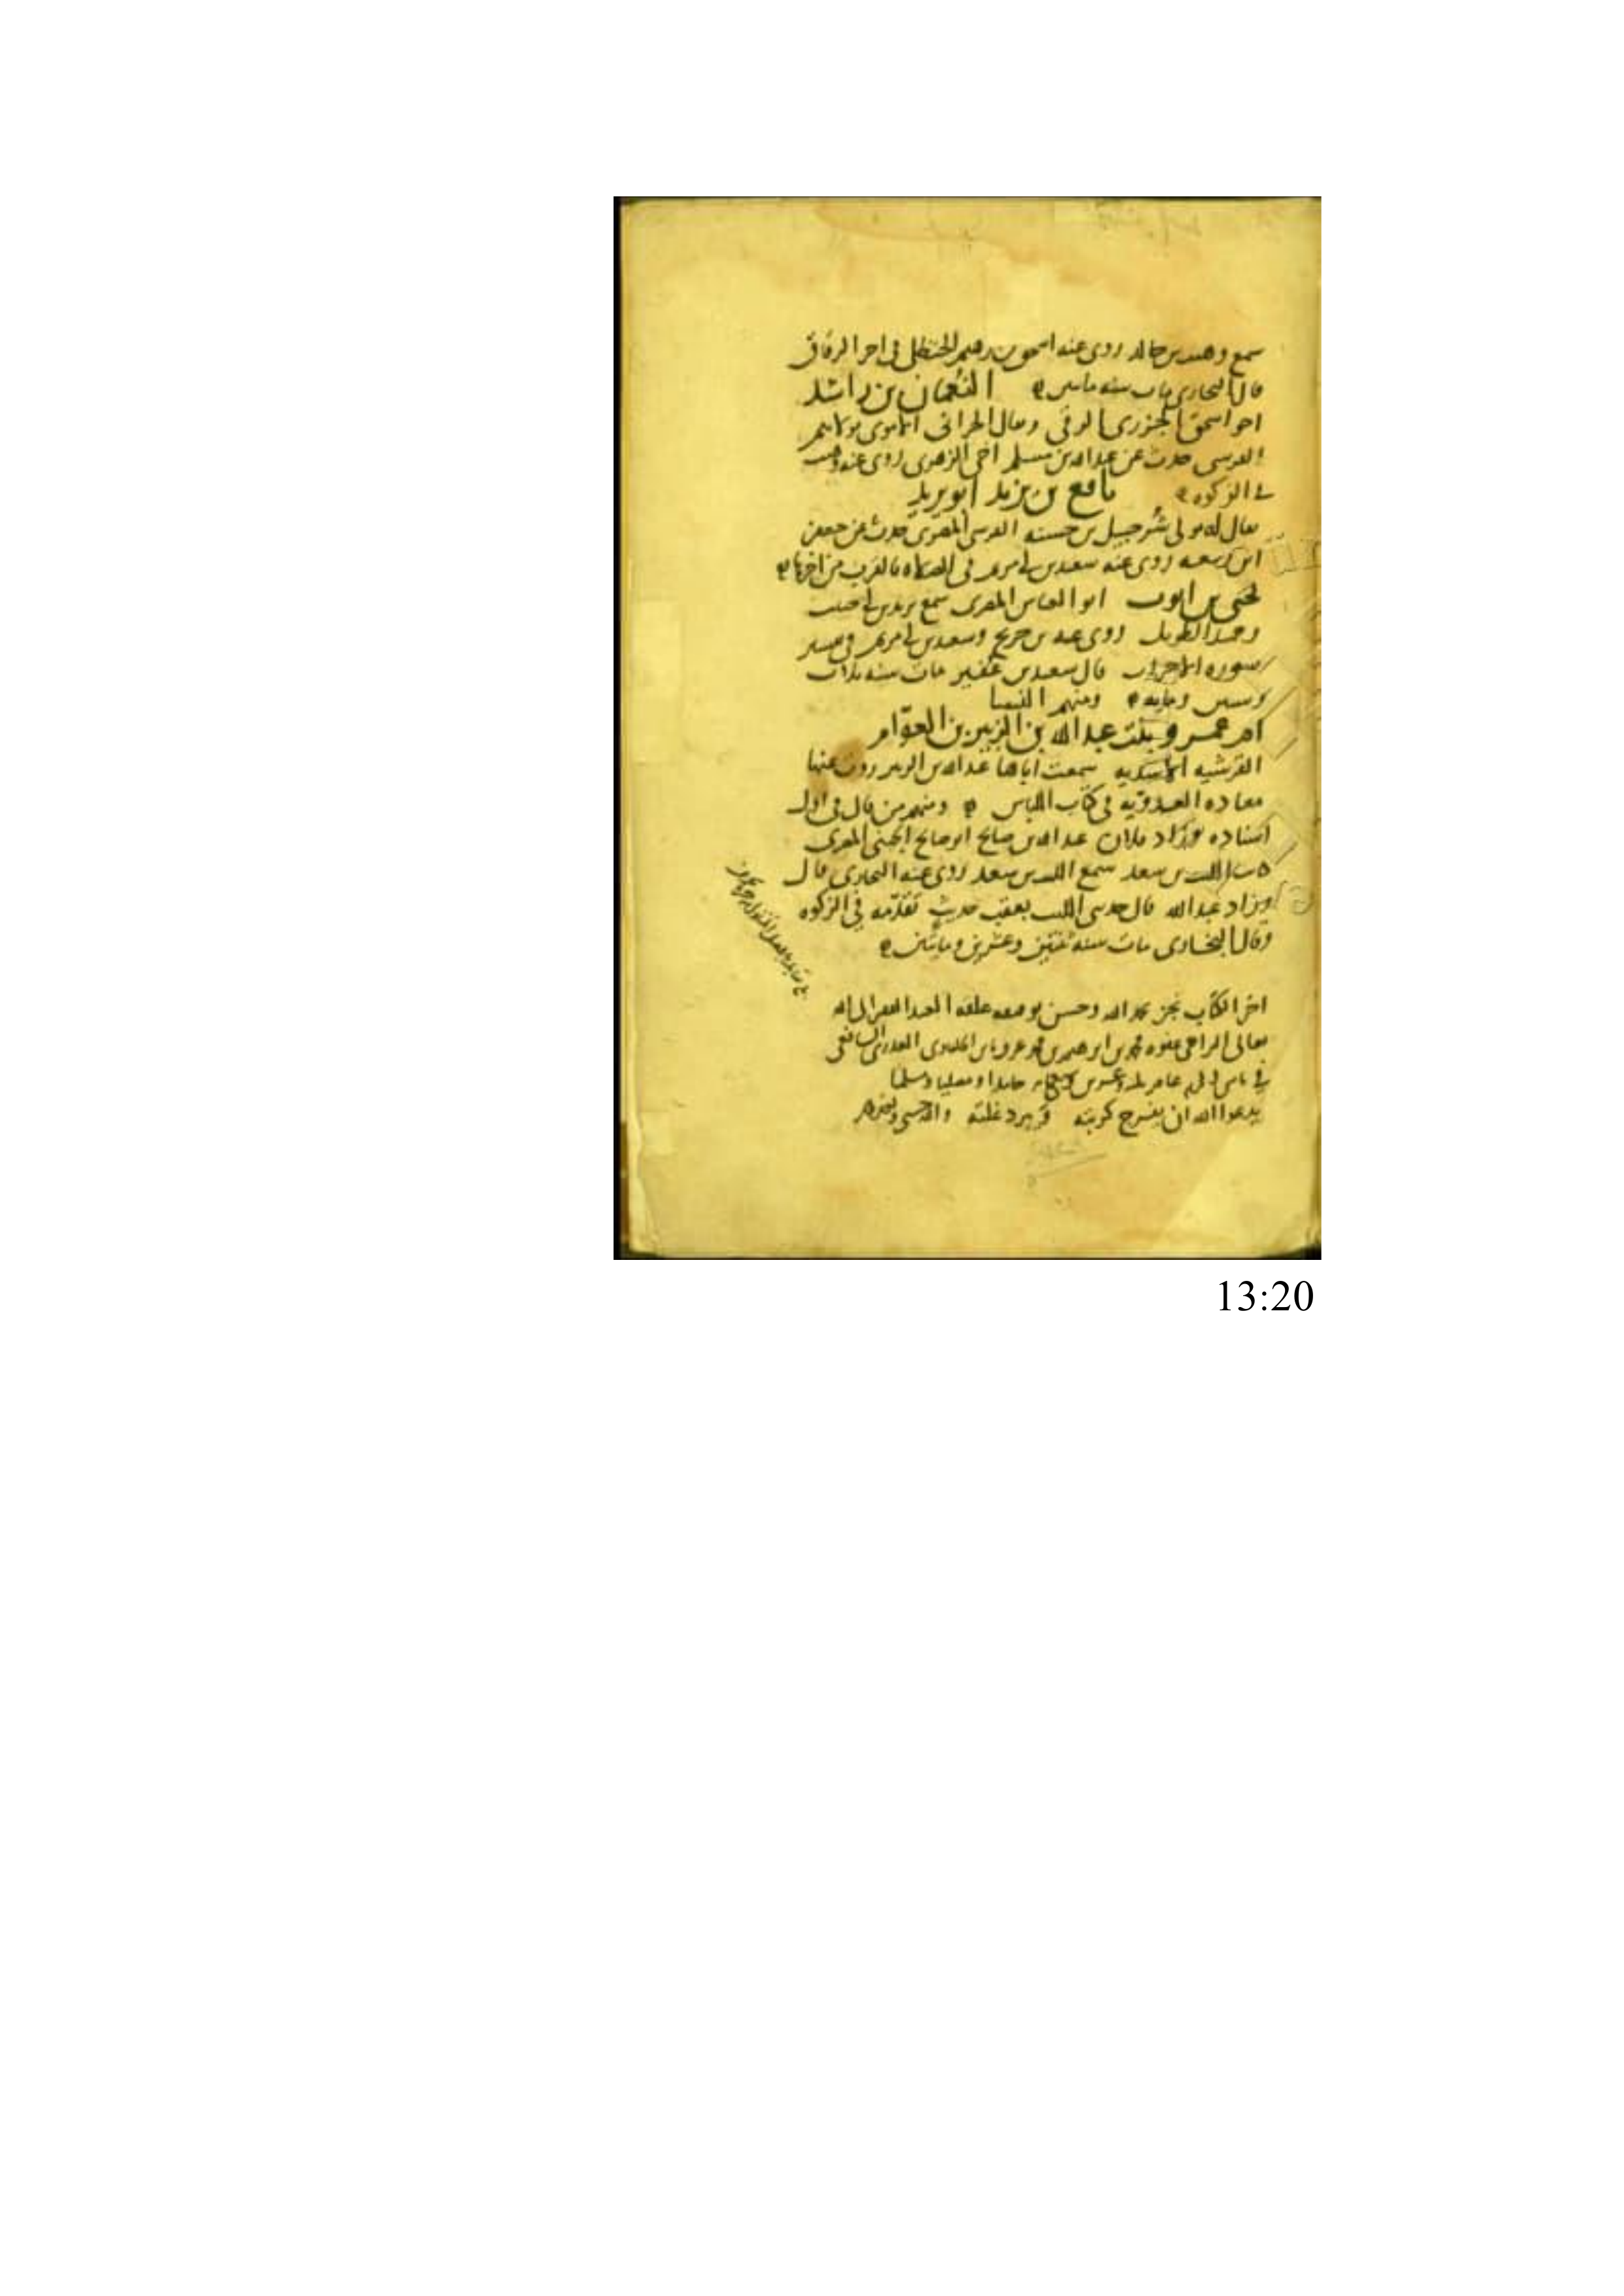 سمع وهيب بن خالد روى عنه اسحق بن ابرهيم الحنظلي في اخر الرقاق
قال البخاري مات سنة مايتين النعمان بن راشد
اخو اسحق الجزري الرقي ويقال الحراني الاموي مولاهم
القرسي حدث عن عبدالله بن مسلم اخي الزهري روى عنه وهيب
في الزكوة نافع بن يزيد ابو يزيد
يقال له مولى شرحبيل بن حسنه القرسي المصري حدث عن جعفر
ابن ربيعه روى عنه سعيد بن ابي مريم في الصلاه بالقرب من اخرها
يحيى بن ايوب ابو العباس المصري سمع يزيد بن ابي حبيب
وحميد الطويل روى عنه بن جريج وسعيد بن ابي مريم في تفسير
سوره الاحزاب قال سعيد بن عفير مات سنه ثلاث
وستين ومايه ومنهم النسا
ام عمرو بنت عبد الله بن الزبير بن العوّام
القرشيه الاسديه سمعت اباها عبد الله بن الزبير روت عنها
معاده العدويه في كتاب اللباس ومنهم من قال في اول
اسناده وزاد فلان عبد الله بن صالح ابو صالح الجهني المصري
كاتب الليث بن سعد سمع الليث بن سعد روى عنه البخاري قال
وزاد عبد الله قال حدثني الليث بعقب حديث تقدّمه في الزكوه
وقال البخاري مات سنه ثنتين وعشرين ومايتين
اخر الكتاب نجز بحمد الله وحسن توفيقه علقه العبد الفقير الى الله
تعالى الراجي عفوه محمد بن ابرهيم بن محمد الشافعي
في حامدا ومصليا ومسلما
يدعوا الله ان يفرج كربته ويبرد غلته
13:20